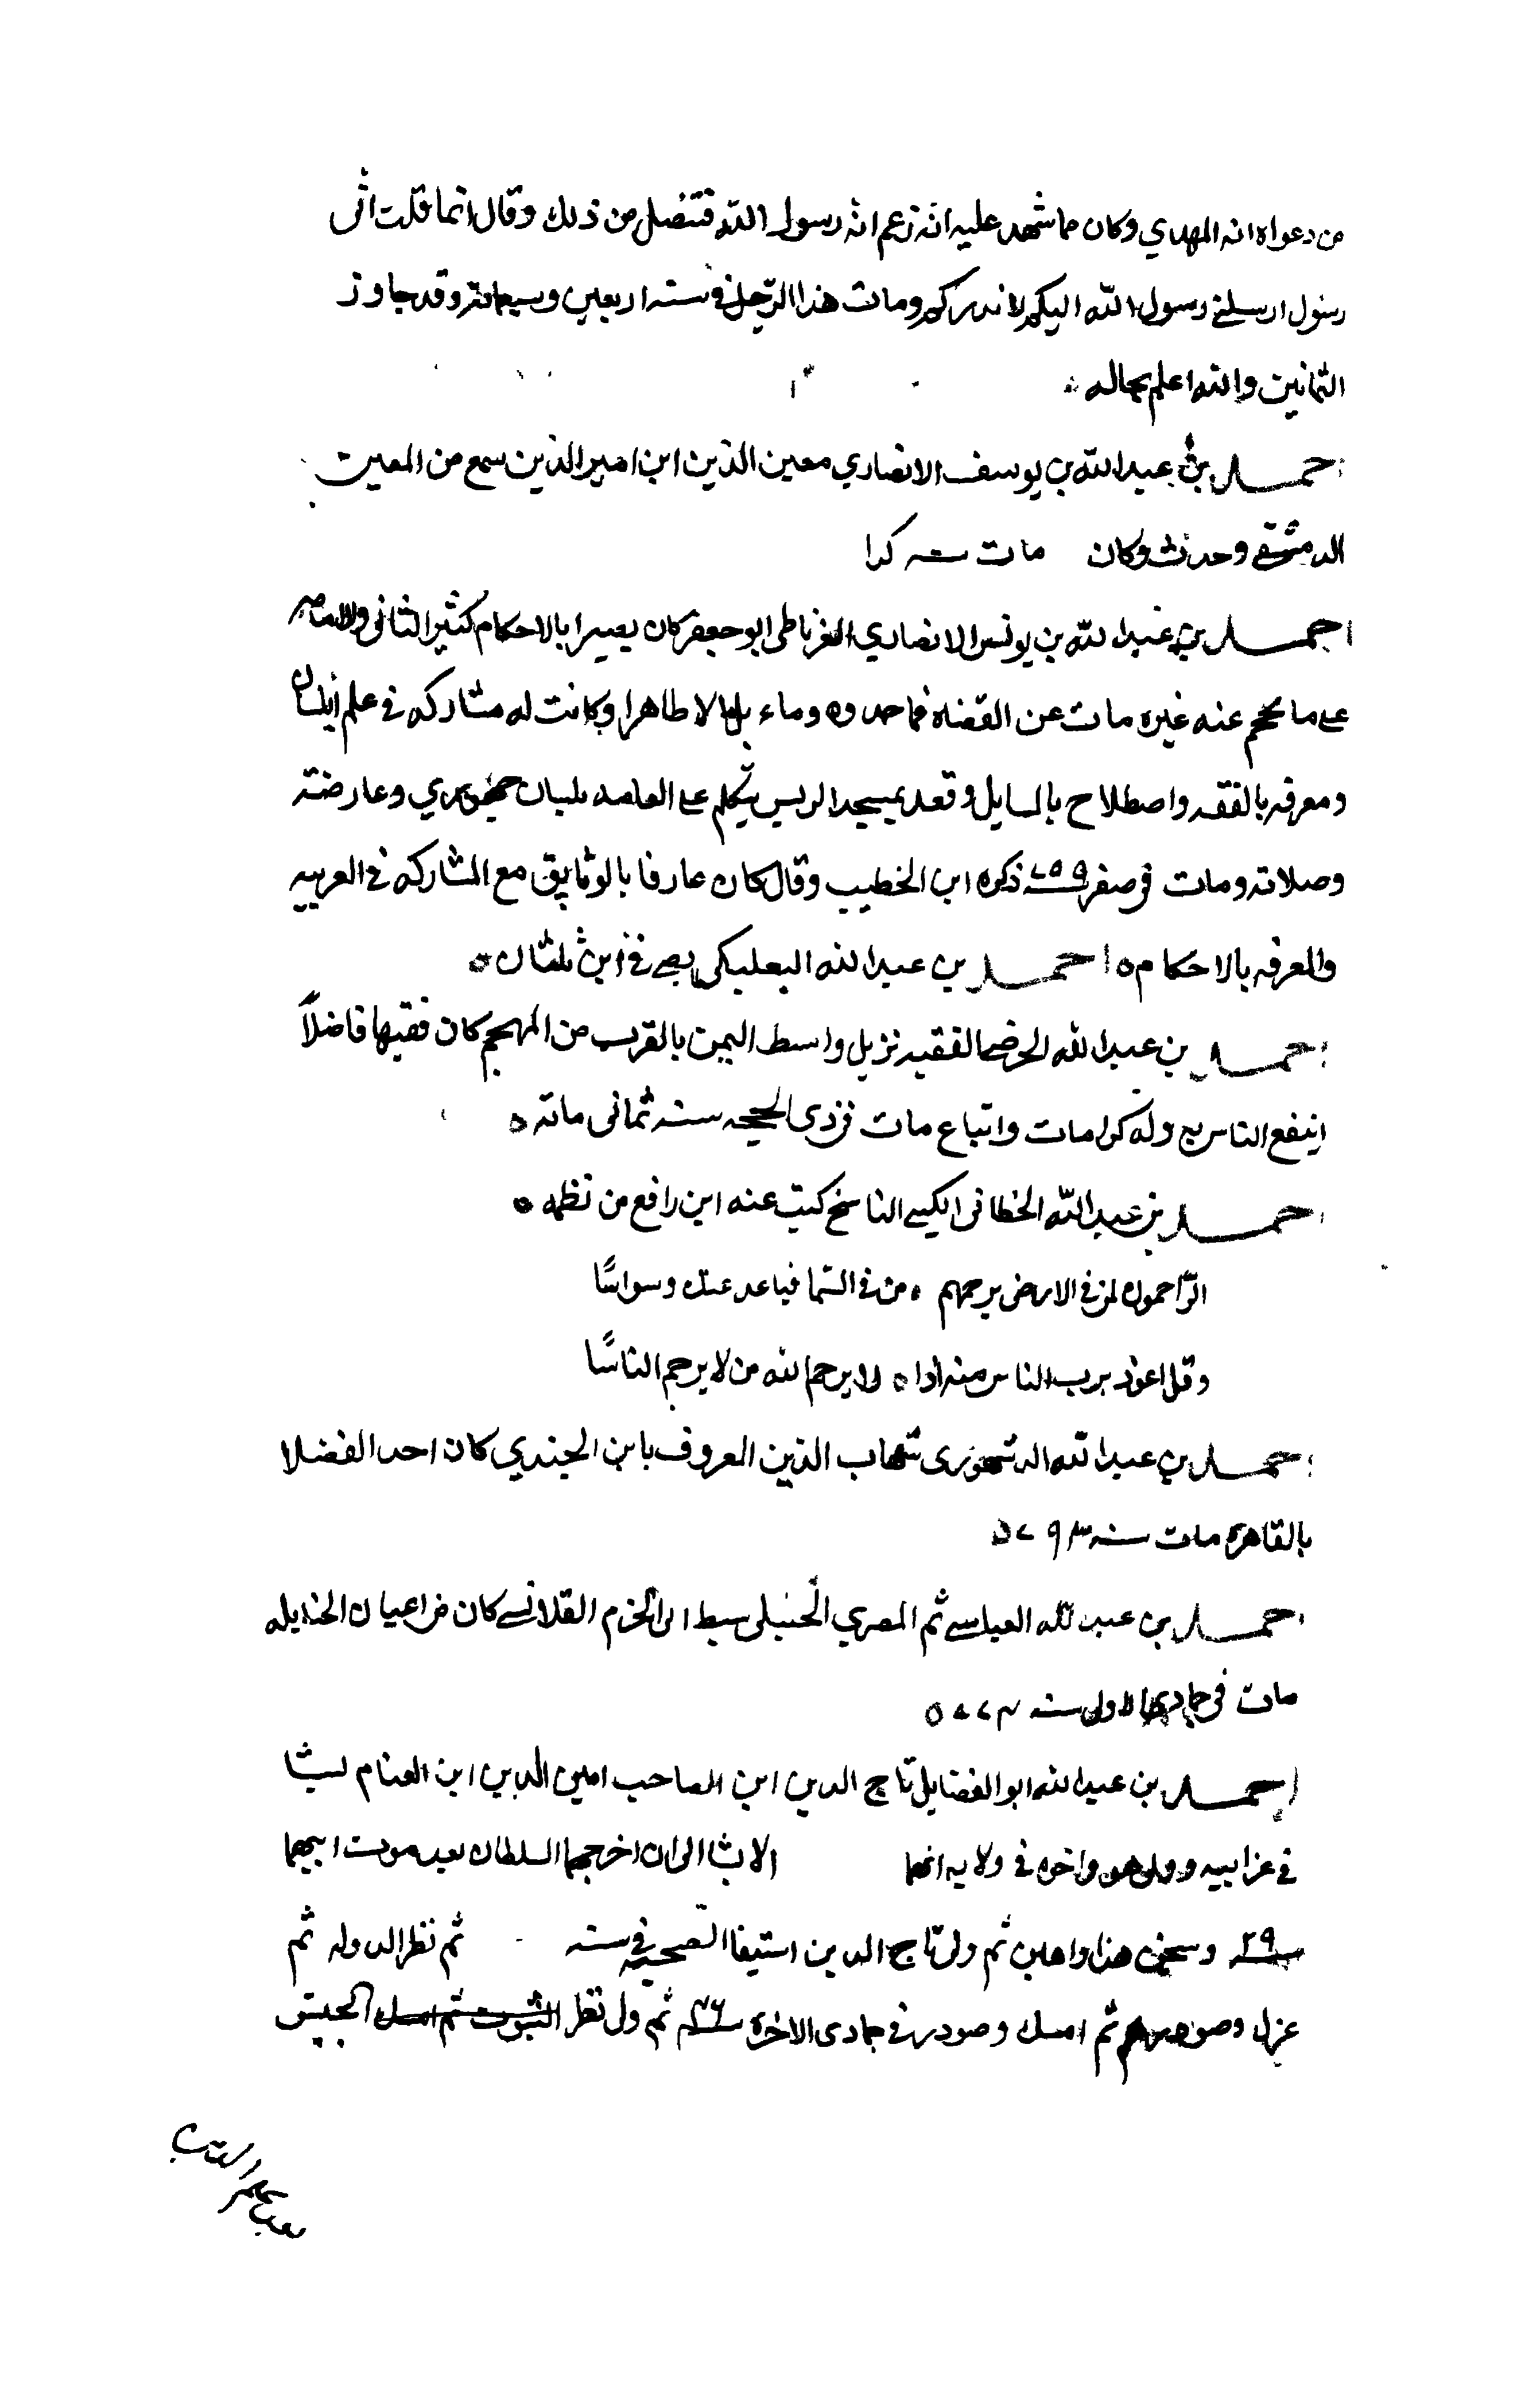 من دعواه انه المهدي وكان مما شهد عليه انه زعم انه رسول الله فتنصل من ذلك وقال انما قلت اني
رسول ارسلني رسول الله اليكم لانذركم ومات هذا الرجل في سنه اربعين وسبعمائة وقد جاوز
الثمانين والله اعلم بحاله
احمد بن عبد الله بن يوسف الانصاري معين الدين ابن امير الدين سمع من المعين
الدمشقي وحدث وكان مات سنه كذا
احمد بن عبد الله بن يونس الانصاري الغرناطي ابو جعفر كان بصيرا بالاحكام كثير التاني
على ما يحجم عنه غيره مات عن القضاه وماء طاهرا وكانت له مشاركه في علم
ومعرفه بالفقه واصطلاح بالمسايل وقعد بمسجد الريس يتكلم على العامه بلسان جهوري وعارضة
وصلاته ومات في صفر ٧٥٩ ذكره ابن الخطيب وقال كان عارفا بالوثايق مع المشاركه في العربيه
والمعرفه بالاحكام ٥ احمد بن عبد الله البعلبكي
احمد بن عبد الله الحرضي الفقيه نزيل واسط اليمن بالقرب من المهجم كان فقيها فاضلاً
انتفع الناس به وله كرامات واتباع مات في ذي الحجه سنه ثماني مائة ٥
احمد بن عبد الله الناسخ كتب عنه ابن رافع من نظمه ٥
الرّاحمون لمن في الارض يرحمهم ٥ من في السّما فباعد عنك وسواسًا
وقل اعوذ برب الناس منه اذا ٥ لا يرحم الله من لا يرحم الناسًا
احمد بن عبد الله شهاب الدين المعروف بابن الجندي كان احد الفضلا
بالقاهره مات سنه ٧٩٣ ٥
احمد بن عبد الله العباسي ثم المصري الحنبلي سبط ابي الحزم القلانسي كان من اعيان الحنابله
مات في جمادي الاولى سنه ٧٧٤ ٥
احمد بن عبد الله ابو الفضايل تاج الدين ابن الصاحب امين الدين ابن الغنام نشا
في عز ابيه وولي هو واخوه في ولايه ابيهما الى ان اخرجهما السلطان بعد موت ابيهما
سنه ٢٩ وسجن هذا واهين ثم ولي تاج الدين استيفا الصحبه في سنه ثم نظر الدوله ثم
عزل وصودر ثم امسك وصودر في جمادى الاخره سنه ٤٦ ثم ولي نظر البيوت ثم امسك الجيش